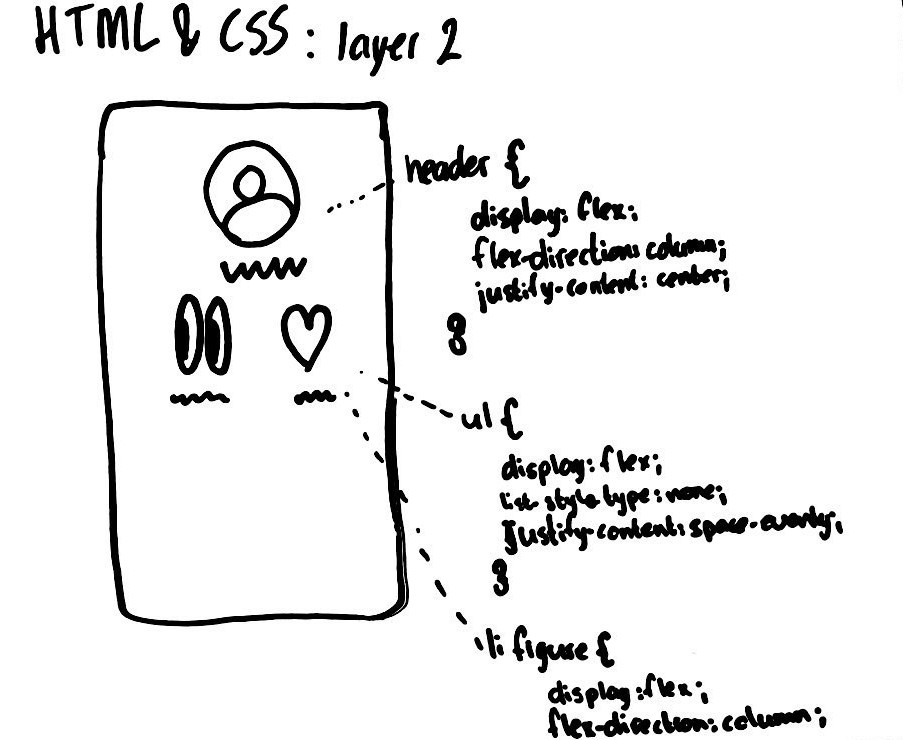 HTML & CSS : layer 2
header {
display: flex;
flex-direction: column;
justify-content: center;
}
ul {
display: flex;
list-style-type: none;
justify-content: space-evenly;
}
li figure {
display: flex;
flex-direction: column;